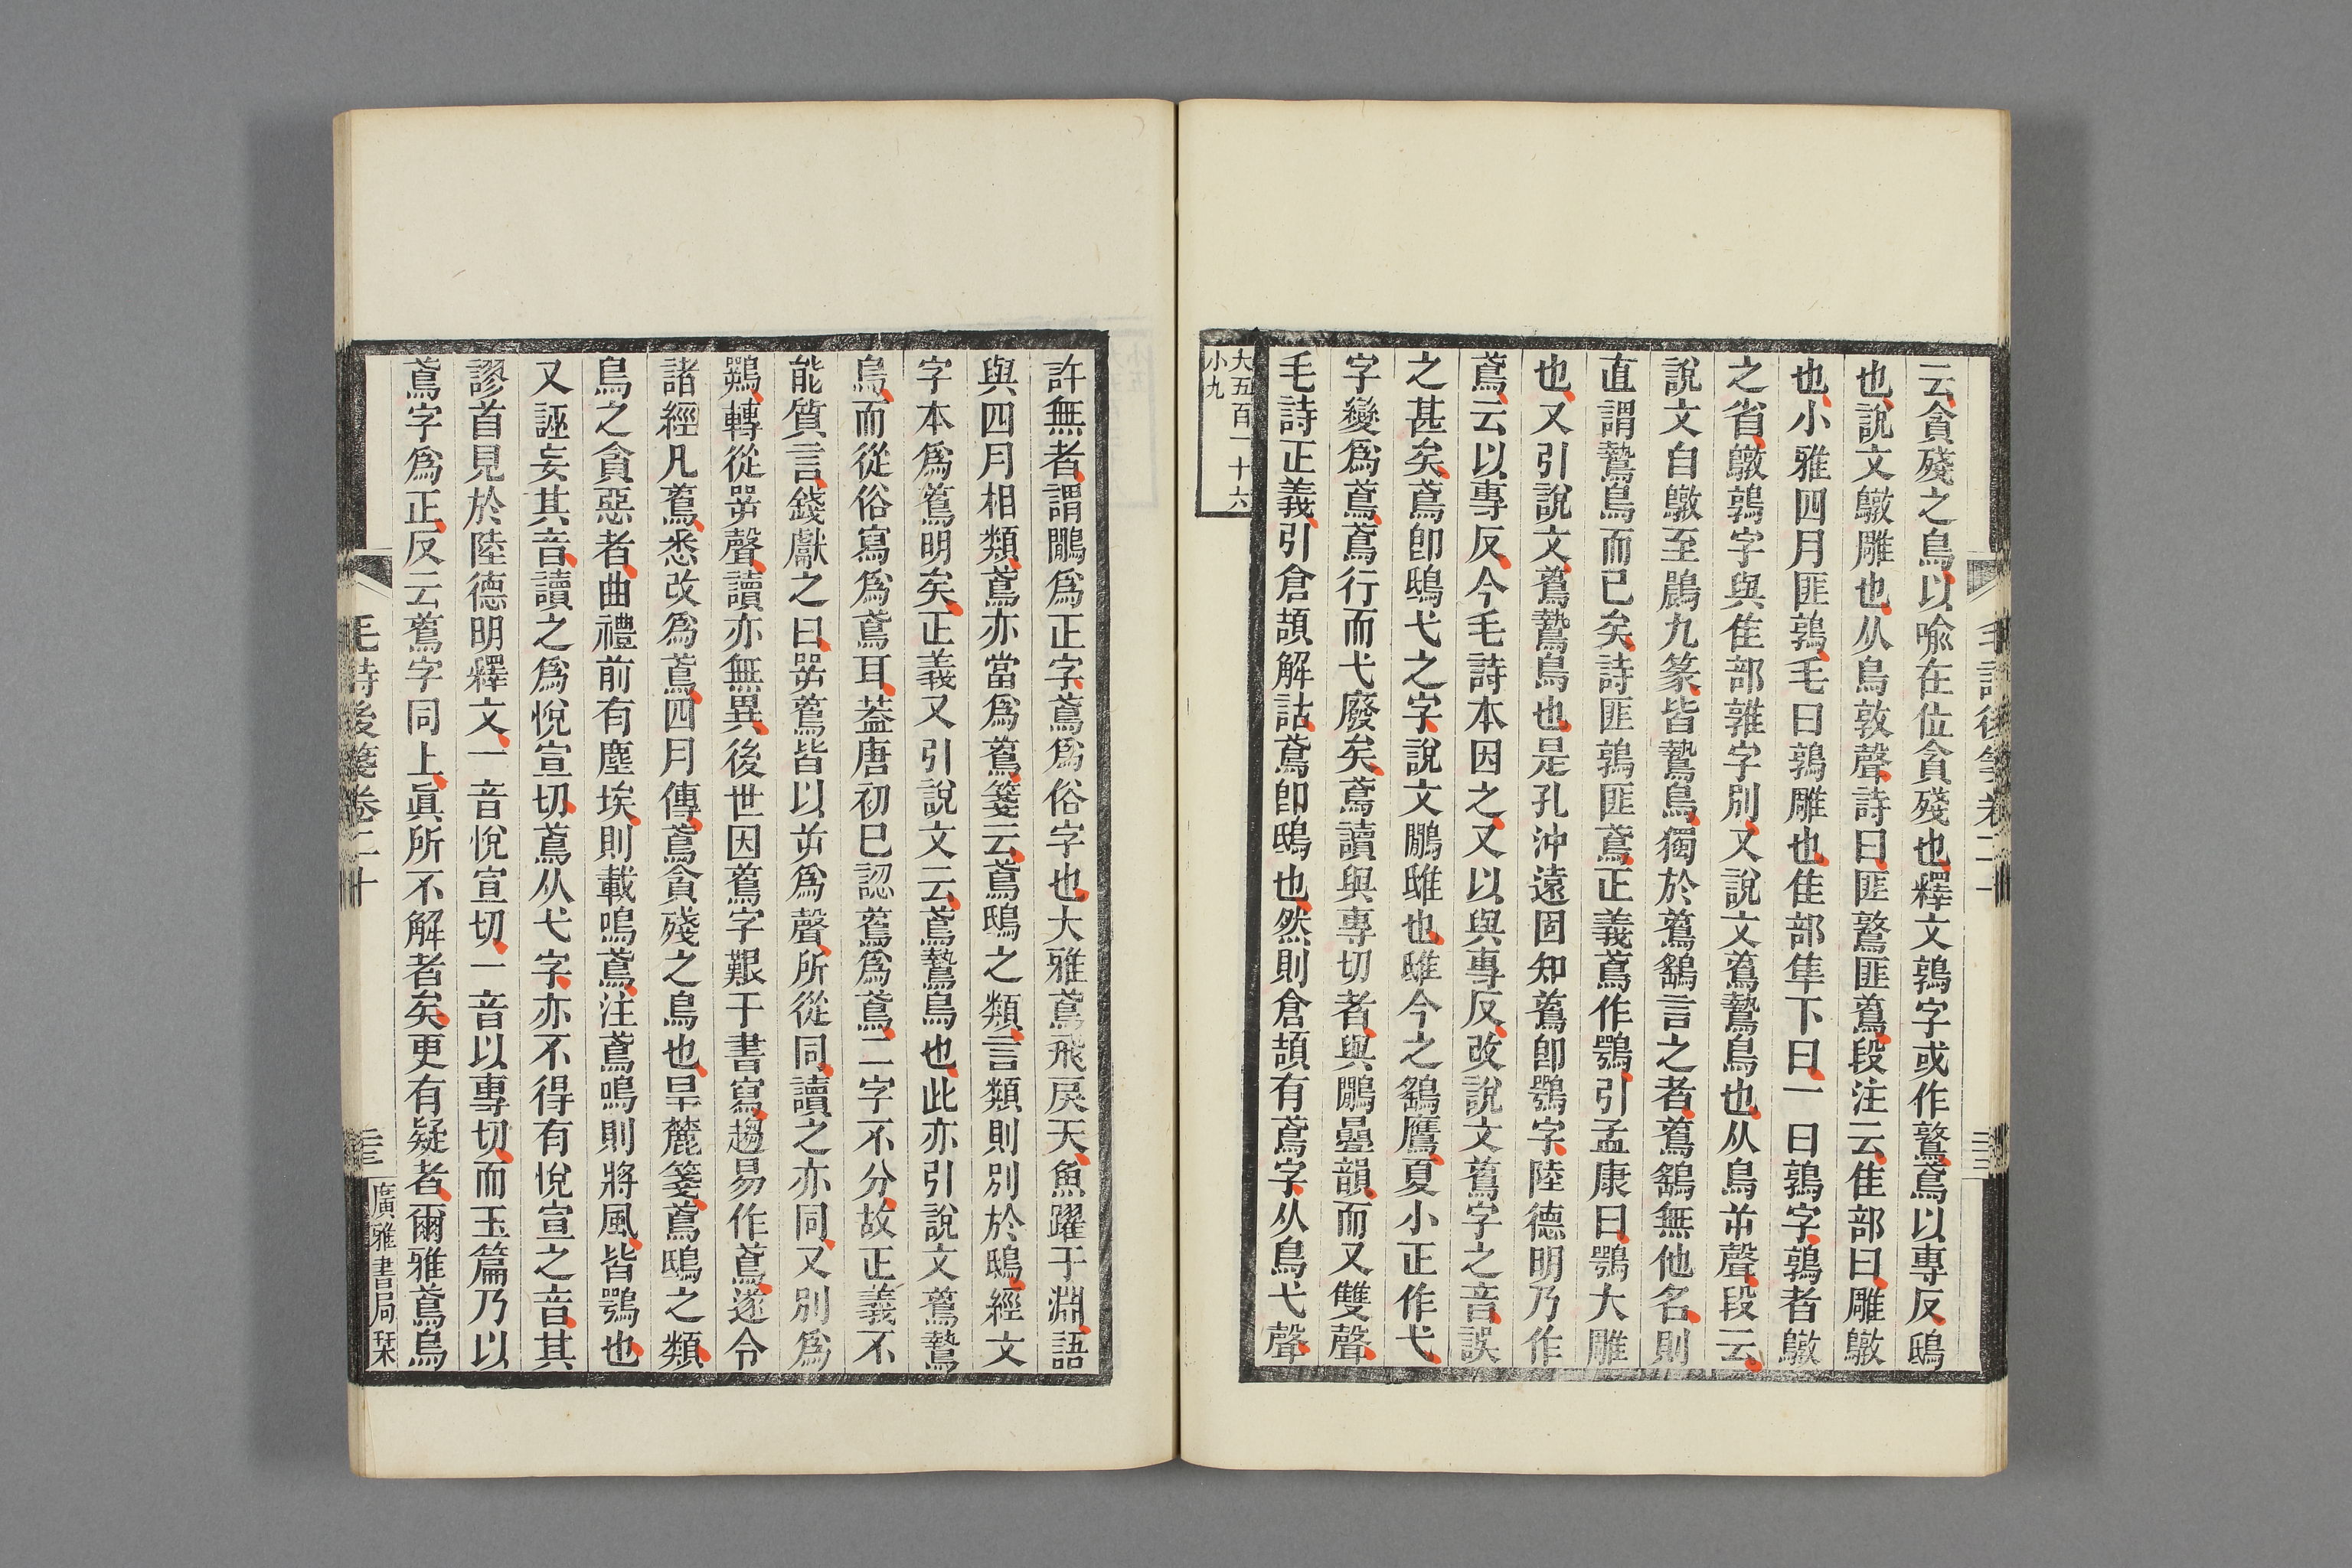 云貪殘之鳥以喩在位貪殘也釋文鶉字或作鷻鳶以專反鴟
也說文鷻雕也从鳥敦聲詩曰匪鷻匪䳒段注云隹部曰雕鷻
也小雅四月匪鶉毛曰鶉雕也隹部隼下曰一曰鶉字鶉者鷻
之省鷻鶉字與隹部雜字別又說文䳒鷙鳥也从鳥屰聲段云
說文自鷻至鷐九篆皆鷙鳥獨於䳒鷂言之者䳒鷂無他名則
直謂鷙鳥而已矣詩匪鶉匪鳶正義鳶作鶚引孟康曰鶚大雕
也又引說文䳒鷙鳥也是孔沖遠固知䳒卽鶚字陸德明乃作
鳶云以專反今毛詩本因之又以與專反改說文䳒字之音誤
之甚矣鳶卽鴟弋之字說文鷳雖也雖今之鷂鷹夏小正作弋
字變爲鳶鳶行而弋廢矣鳶讀與專切者與鷳疊韻而又雙聲
毛詩正義引倉頡解詁鳶卽鴟也然則倉頡有鳶字从鳥弋聲
大五百一十六
小九
許無者謂鷳爲正字鳶爲俗字也大雅鳶飛戾天魚躍于淵語
與四月相類鳶亦當爲䳒箋云鳶鴟之類言類則別於鴟經文
字本爲䳒明矣正義又引說文云鳶鷙鳥也此亦引說文䳒鷙
鳥而從俗寫爲鳶耳葢唐初已認䳒爲鳶二字不分故正義不
能質言錢獻之曰咢䳒皆以屰爲聲所從同讀之亦同又別爲
鶚轉從咢聲讀亦無異後世因䳒字艱于書寫趨易作鳶遂令
諸經凡䳒悉改爲鳶四月傳鳶貪殘之鳥也旱麓箋鳶鴟之類
鳥之貪惡者曲禮前有塵埃則載鳴鳶注鳶鳴則將風皆鶚也
又誣妄其音讀之爲悅宣切鳶从弋字亦不得有悅宣之音其
謬首見於陸德明釋文一音悅宣切一音以專切而玉篇乃以
鳶字爲正反云䳒字同上眞所不解者矣更有疑者爾雅鳶烏
毛詩後箋卷二十
三三
廣雅書局栞